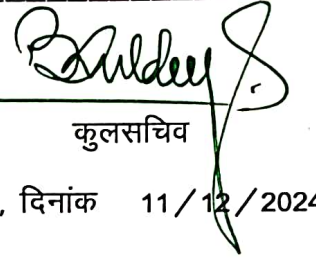 कुलसचिव
, दिनांक 11/12/2024